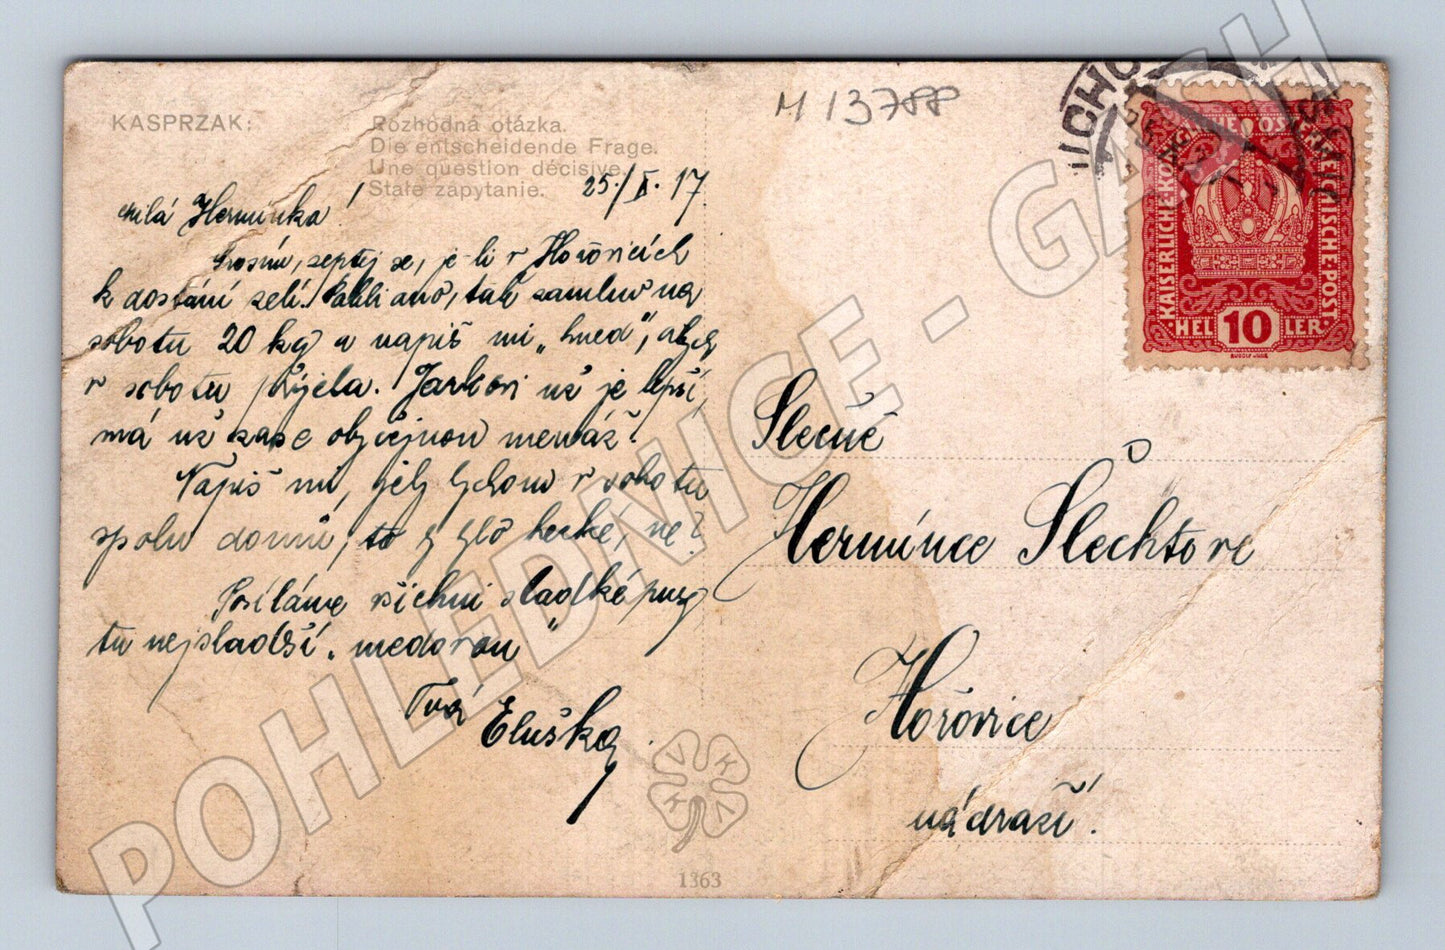 M 13788
KASPRZAK:
Rozhodná otázka.
Die entscheidende Frage.
Une question décisive.
Stałe zapytanie.
25./X. 17
Milá Herminko!
Prosím, zeptej se, je-li v Hořovicích
k dostání zelí. Jestli ano, tak zamluv na
sobotu 20 kg a napiš mi „hned", abych
v sobotu přijela. Jarkovi už je lepší,
má už zase obyčejnou menáž.
Napiš mi, jely bychom v sobotu
spolu domů, to by bylo hezké, ne?
Posíláme všichni sladké pusy
tu nejsladší „medovou"
Tvá
Eluška.
VKKV
1363
KAISERLICHE KÖNIGLICHE ÖSTERREICHISCHE POST
HELLER
10
Slečně
Hermínce Šlechtove
Hořovice
nádraží.
POHLEDNICE - GASH